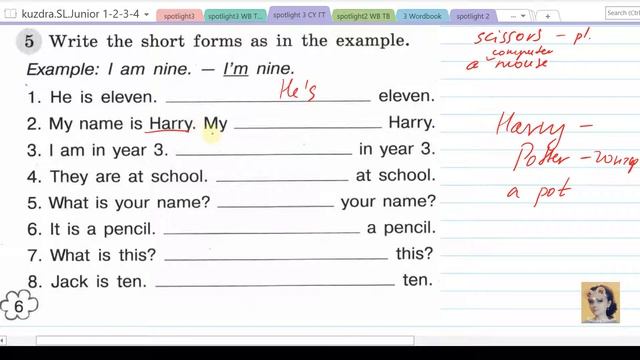 kuzdra.SL.Junior 1-2-3-4 spotlight3 spotlight3 WB T... spotlight 3 CY ГТ spotlight2 WB TB 3 Wordbook spotlight 2 ...
5 Write the short forms as in the example.
Example: I am nine. — I'm nine.
1. He is eleven. He's eleven.
2. My name is Harry. My Harry.
3. I am in year 3. in year 3.
4. They are at school. at school.
5. What is your name? your name?
6. It is a pencil. a pencil.
7. What is this? this?
8. Jack is ten. ten.
6
scissors – pl.
computer
a mouse
Harry –
Potter –
a pot
Search